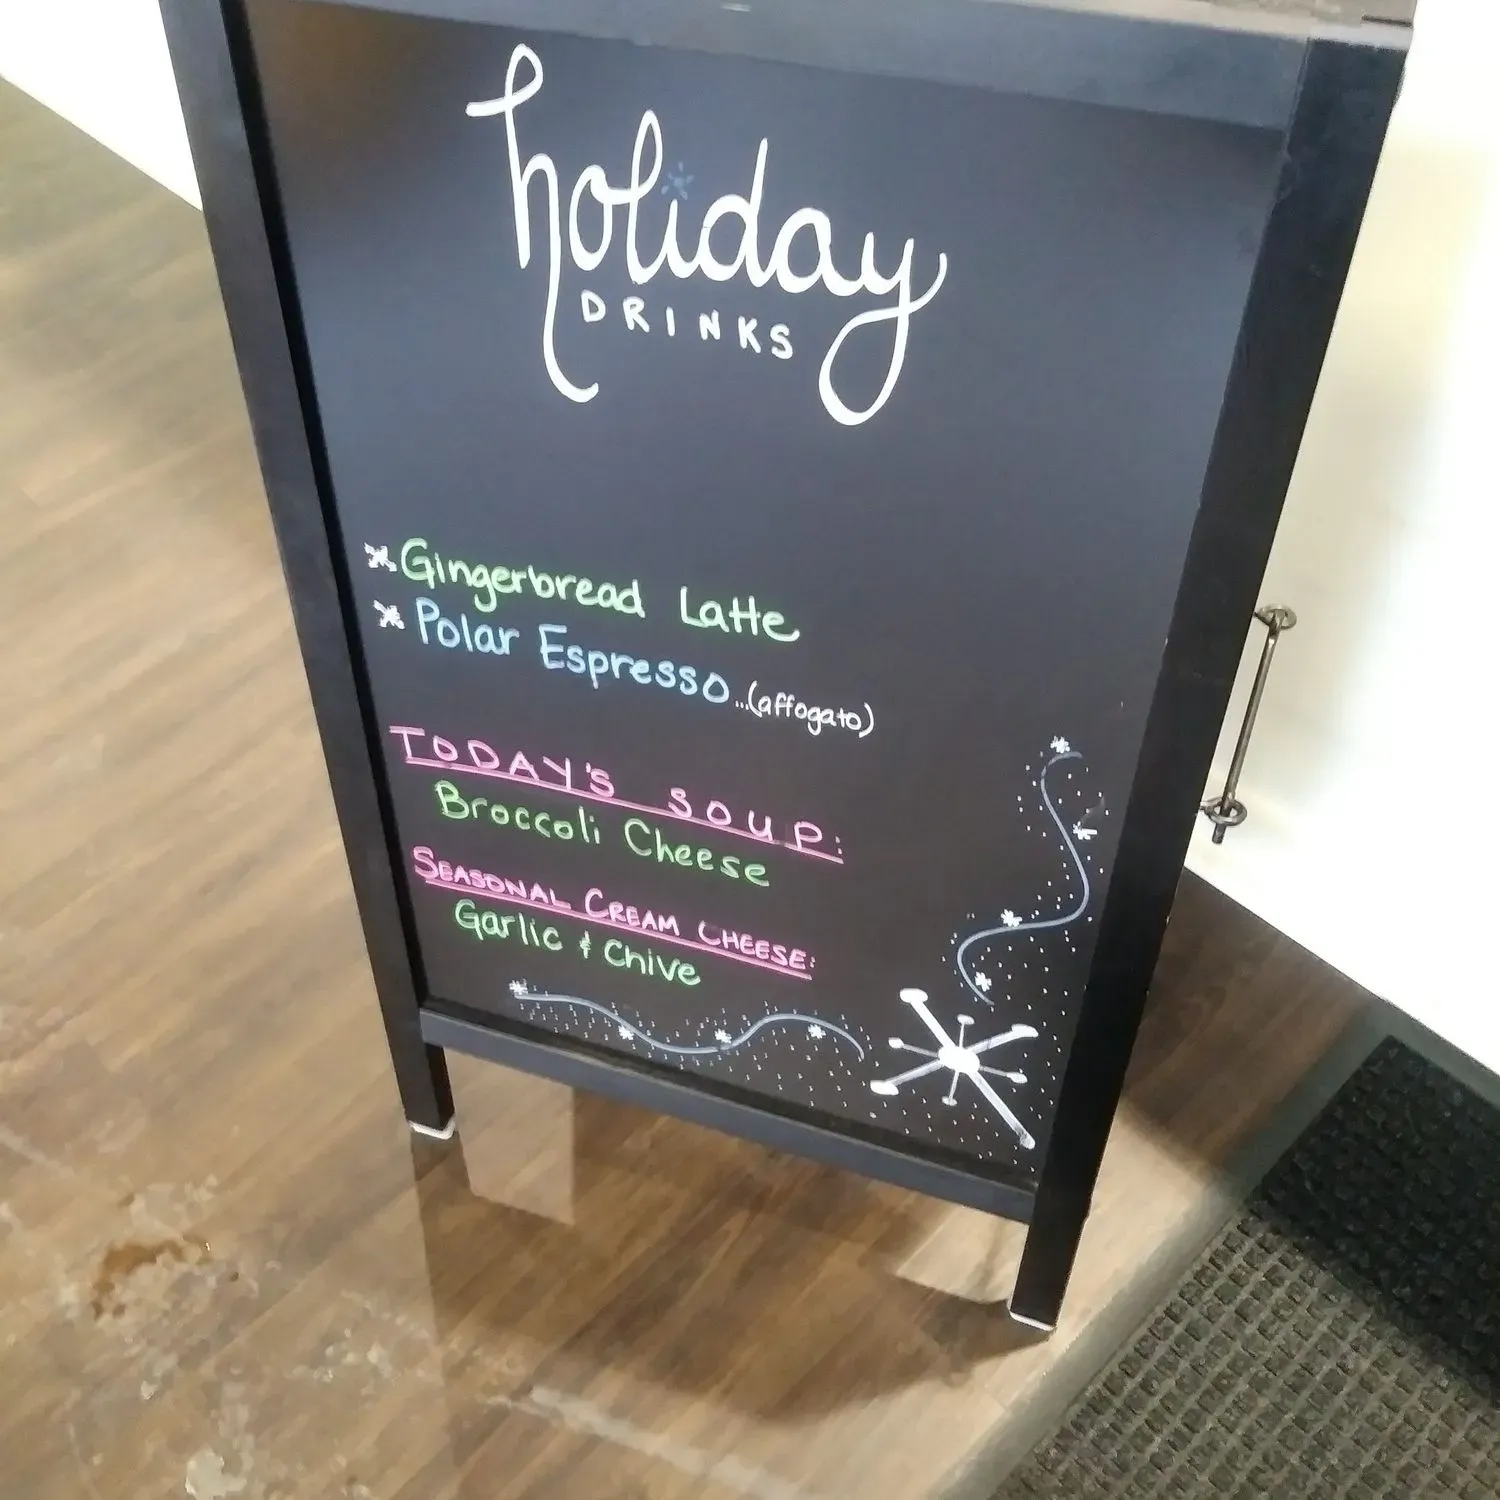 holiday
DRINKS
Gingerbread Latte
Polar Espresso...(affogato)
TODAY'S SOUP:
Broccoli Cheese
SEASONAL CREAM CHEESE:
Garlic & Chive